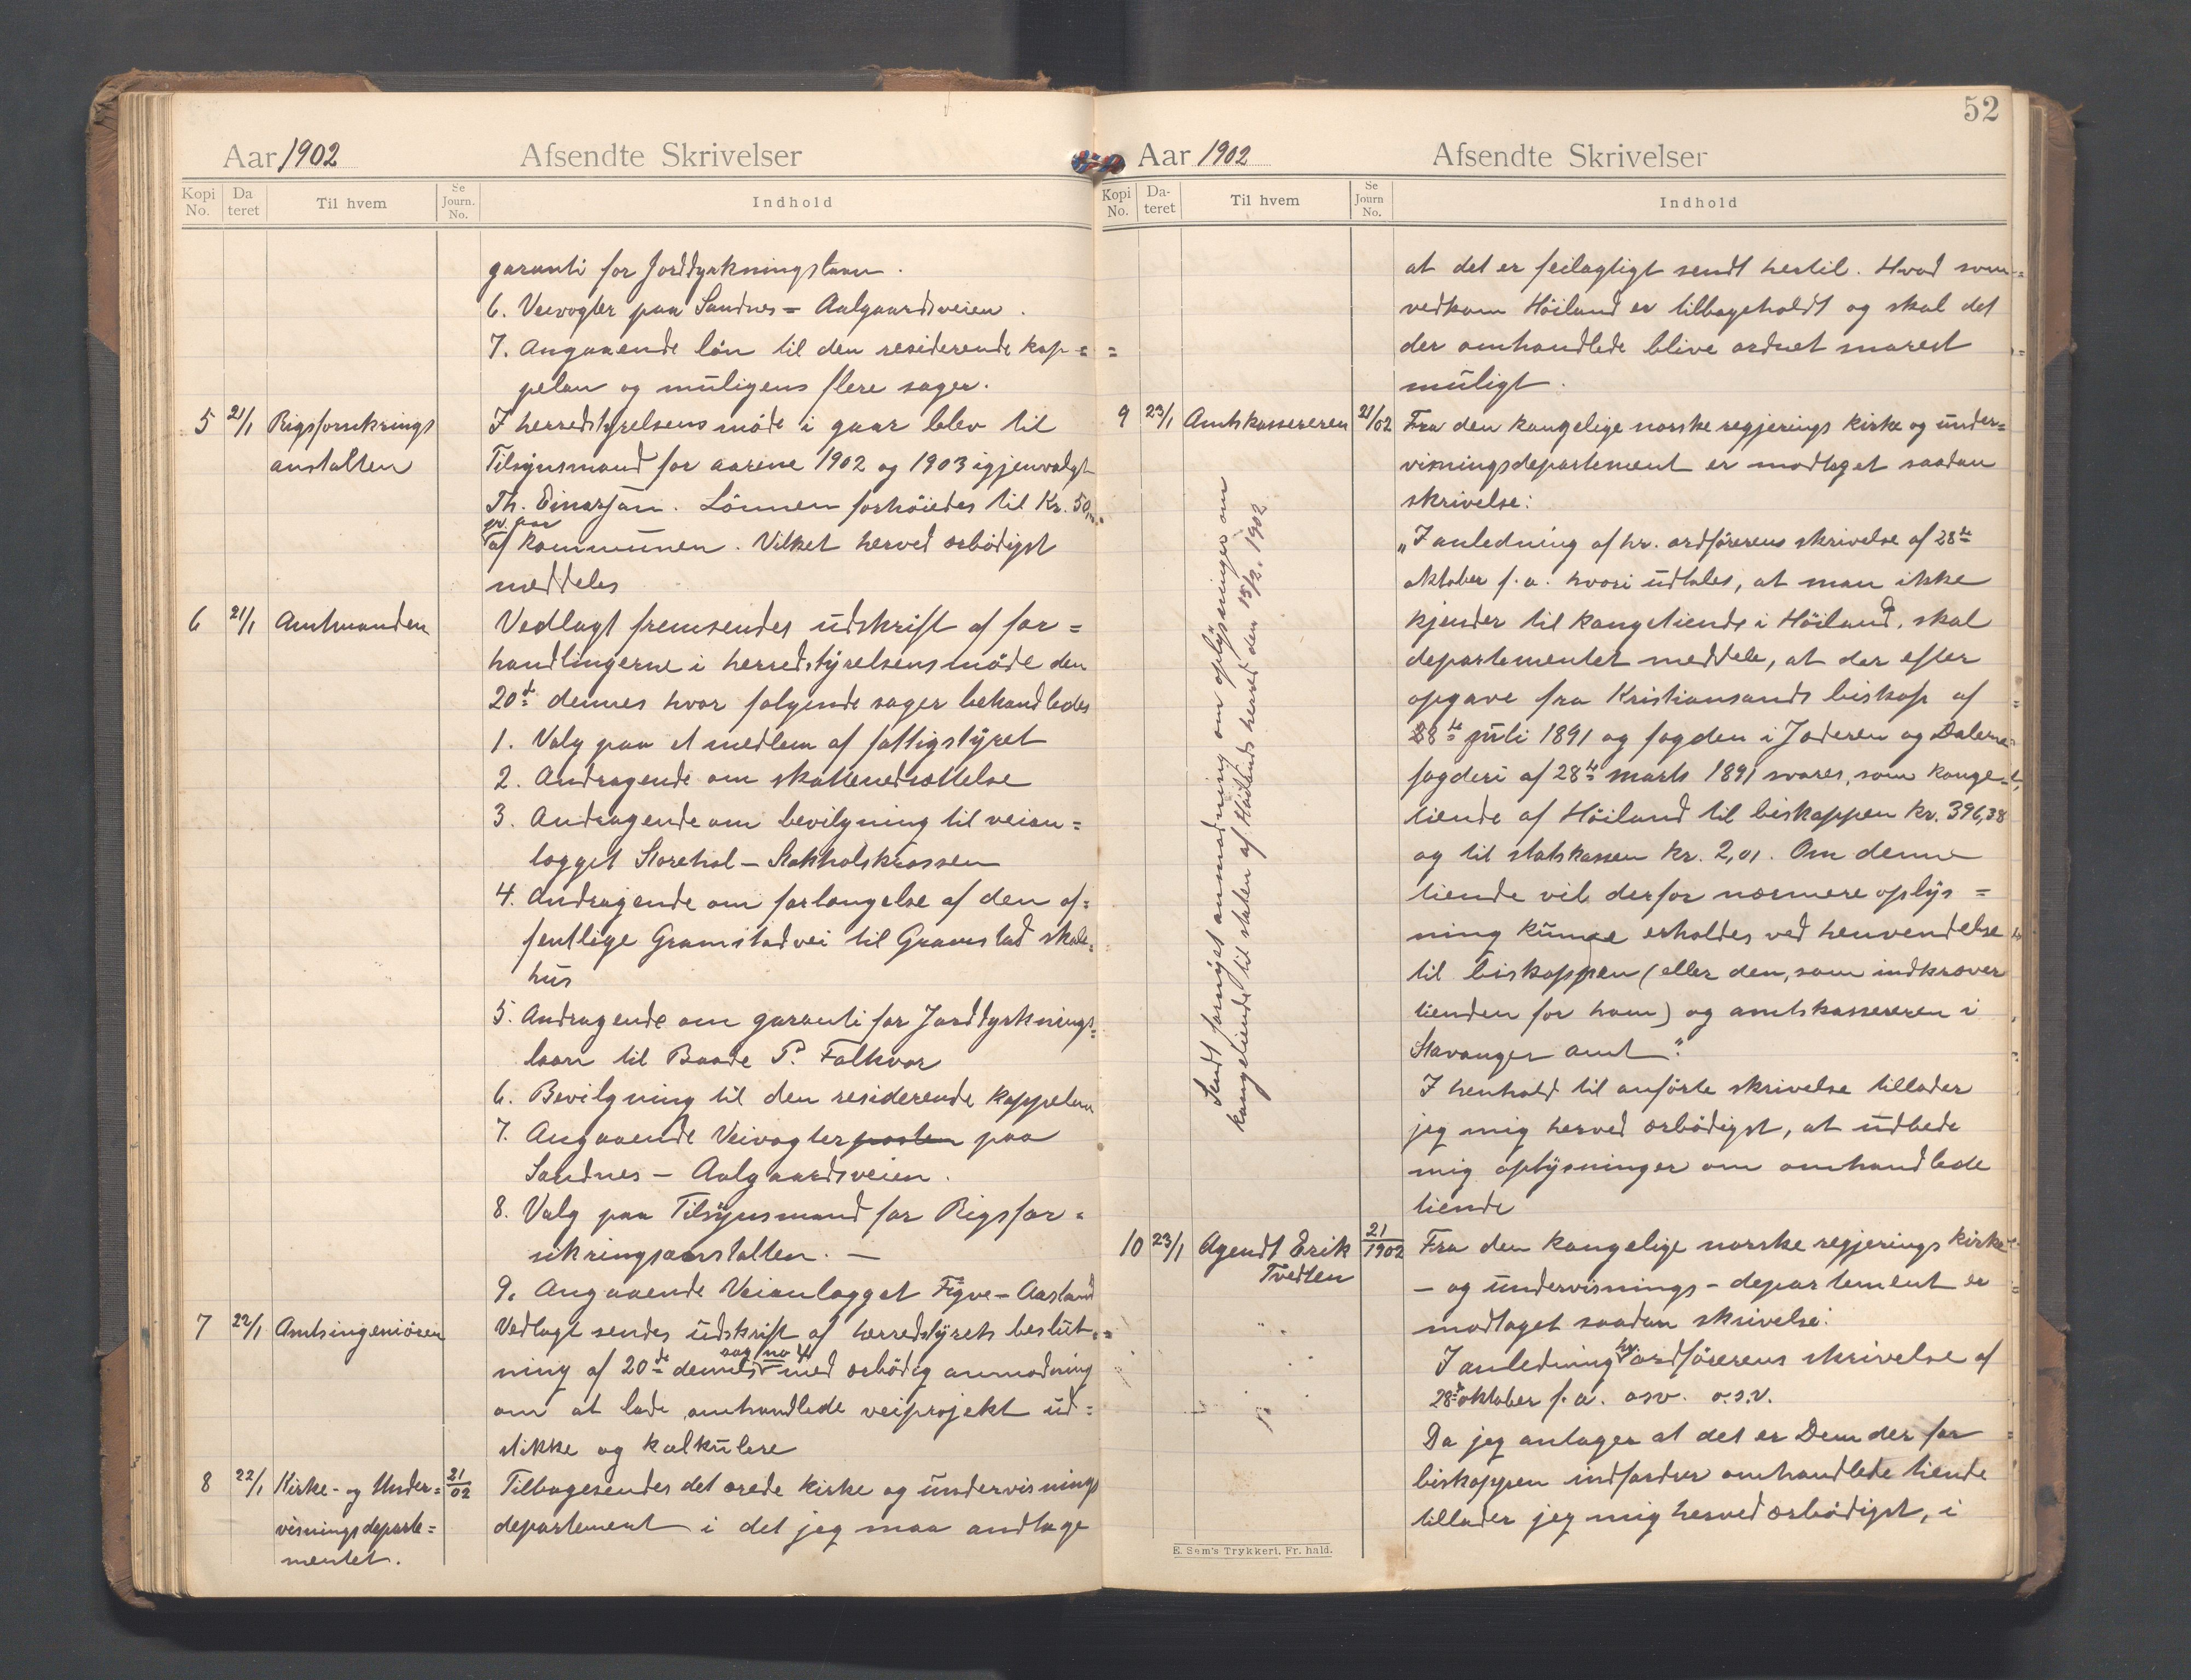 Aar 1902 Afsendte Skrivelser
Kopi No. Da teret Til hvem Se Journ. No. Indhold
garanti for Jorddyrkningslaan.
6. Veivogter paa Sandnes = Aalgaardsveien.
7. Angaaende løn til den residerende kap=
pelan og muligens flere sager.
5 21/1 Rigsforsikrings I herredstyrelsens møde i gaar blev til
anstalten Tilsynsmand for aarene 1902 og 1903 igjenvalgt
Th. Einarsen. Lønnen forhøiedes til Kr. 50,00
pr. aar
af kommunen. Vilket herved ærbødigst
meddeles
6 21/1 Amtmanden Vedlagt fremsendes udskrift af for=
handlingerne i herredstyrelsens møde den
20de dennes hvor følgende sager behandledes
1. Valg paa et medlem af fattigstyret
2. Andragende om skattenedsættelse
3. Andragende om bevilgning til veian=
lægget Storehol – Stokholskrossen
4. Andragende om forlængelse af den of=
fentlige Gramstadvei til Gramstad skole=
hus
5. Andragende om garanti for Jorddyrknings=
laan til Baade P. Folkvor
6. Bevilgning til den residerende kappelan
7. Angaaende Veivogterposten paa
Sandnes – Aalgaardsveien.
8. Valg paa Tilsynsmand for Rigsfor=
sikringsanstalten. –
9. Angaaende Veianlægget Figve – Aasland
7 22/1 Amtsingeniøren Vedlagt sendes udskrift af herredstyrets beslut=
sag no 4
ning af 20de dennes med ærbødig anmodning
om at lade omhandlede veiprojekt ud=
stikke og kalkulere
8 22/1 Kirke- og Under= 21/02 Tilbagesendes det ærede kirke og undervisnings
visningsdeparte= departement i det jeg maa andtage
mentet.
52
Aar 1902 Afsendte Skrivelser
Kopi No. Da- teret Til hvem Se Journ No. Indhold
at det er feilagtigt sendt hertil. Hvad som
vedkom Høiland er tilbageholdt og skal det
der omhandlede blive ordnet snarest
muligt.
9 23/1 Amtskassereren 21/02 Fra den kongelige norske regjerings kirke og under=
visningsdepartement er modtaget saadan
skrivelse:
„I anledning af hr. ordførerens skrivelse af 28de
oktober f.a. hvori udtales, at man ikke
kjender til kongetiende i Høiland, skal
departementet meddele, at der efter
opgave fra Kristiansands biskop af
28de juli 1891 og fogden i Jæderen og Dalerne
fogderi af 28de marts 1891 svares, som konge=
tiende af Høiland til biskoppen kr. 396,38
og til statskassen kr. 2,01. Om denne
tiende vil derfor nærmere oplys=
ning kunne erholdes ved henvendelse
til biskoppen (eller den, som indkræver
tienden for ham) og amtskassereren i
Stavanger amt".
I henhold til anførte skrivelse tillader
jeg mig herved ærbødigst, at udbede
mig oplysninger om omhandlede
tiende
Sendt fornyet anmodning om oplysninger om
kongetiende til staten af Høilands herred den 15/2. 1902
10 23/1 Agendt Erik 21/1902 Fra den kongelige norske regjerings kirke
Tvedten – og undervisnings – departement er
modtaget saadan skrivelse:
I anledning hr. ordførerens skrivelse af
28de oktober f.a. osv. o.s.v.
Da jeg antager at det er Dem der for
biskoppen indfordrer omhandlede tiende
tillader jeg mig herved ærbødigst, i
E. Sem's Trykkeri, Fr. hald.